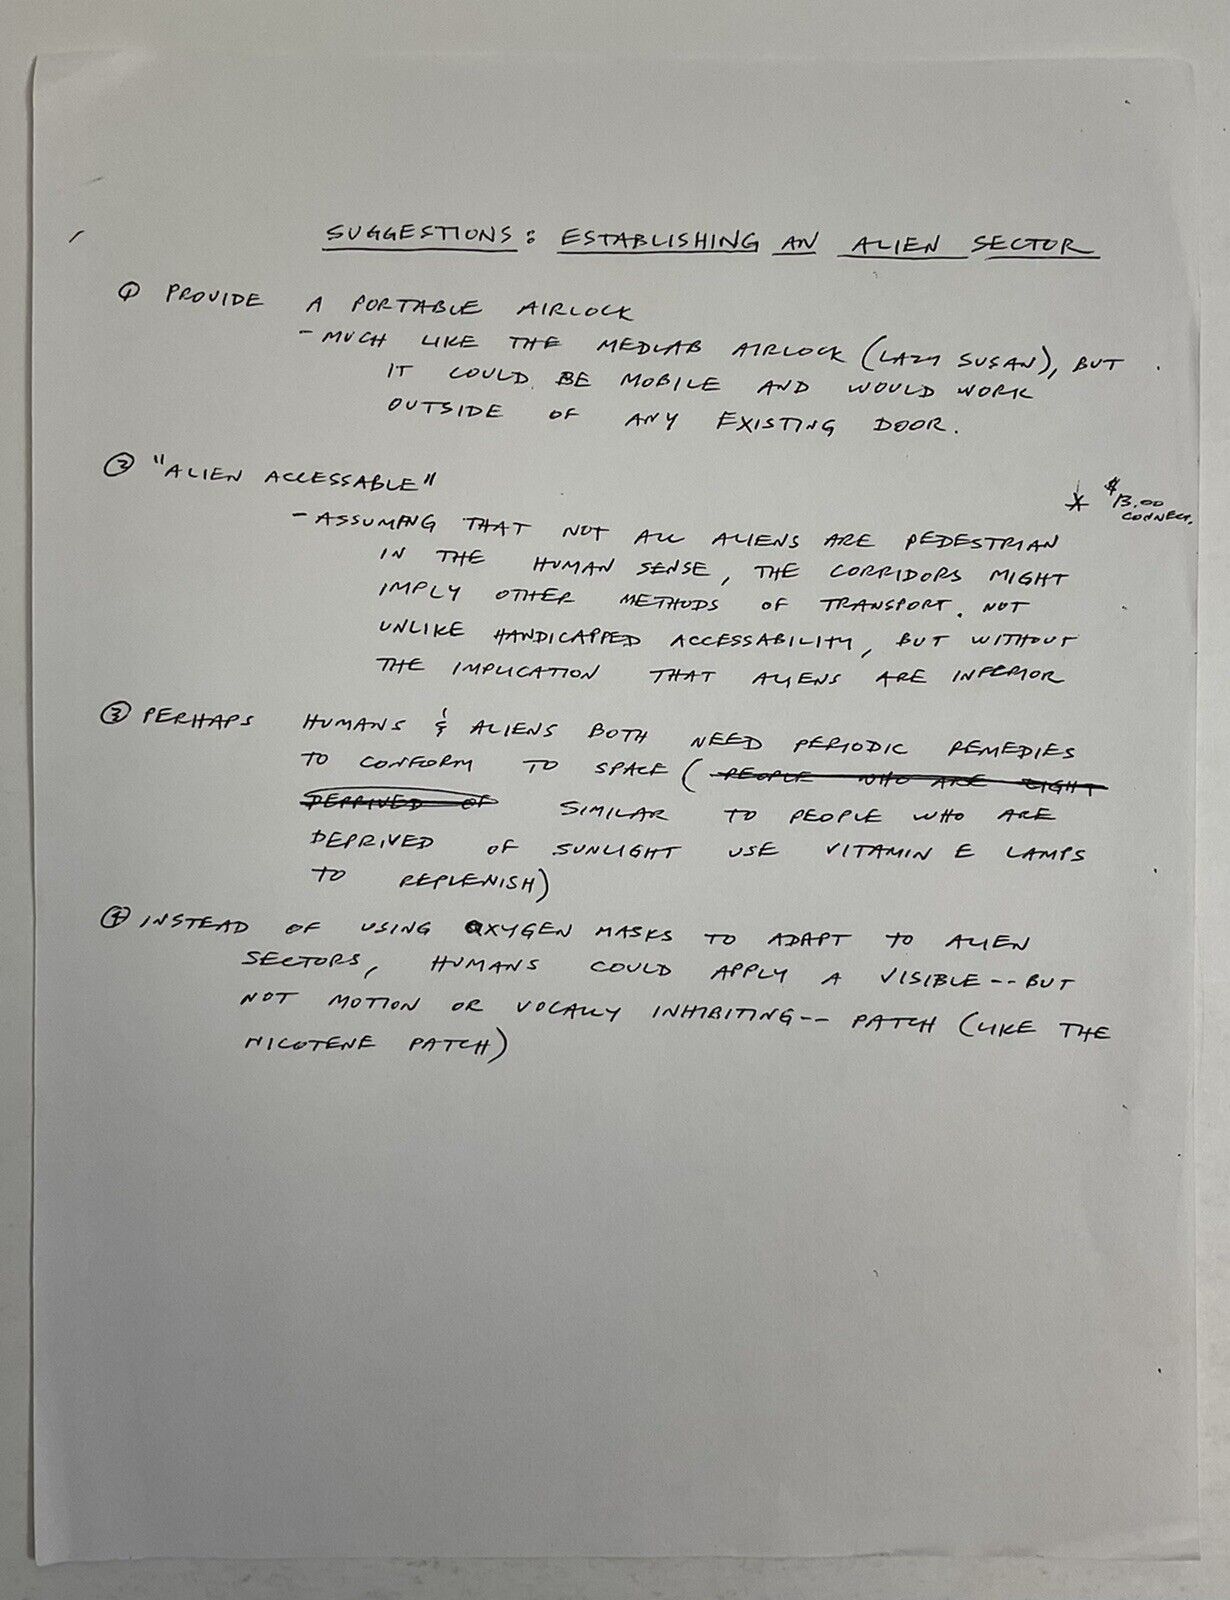 SUGGESTIONS: ESTABLISHING AN ALIEN SECTOR
① PROVIDE A PORTABLE AIRLOCK
- MUCH LIKE THE MEDLAB AIRLOCK (LAZY SUSAN), BUT
IT COULD BE MOBILE AND WOULD WORK
OUTSIDE OF ANY EXISTING DOOR.
② "ALIEN ACCESSABLE"
* $13.00
CONNECT.
- ASSUMING THAT NOT ALL ALIENS ARE PEDESTRIAN
IN THE HUMAN SENSE, THE CORRIDORS MIGHT
IMPLY OTHER METHODS OF TRANSPORT. NOT
UNLIKE HANDICAPPED ACCESSABILITY, BUT WITHOUT
THE IMPLICATION THAT ALIENS ARE INFERIOR
③ PERHAPS HUMANS & ALIENS BOTH NEED PERIODIC REMEDIES
TO CONFORM TO SPACE (PEOPLE WHO ARE LIGHT
DEPRIVED OF SIMILAR TO PEOPLE WHO ARE
DEPRIVED OF SUNLIGHT USE VITAMIN E LAMPS
TO REPLENISH)
④ INSTEAD OF USING OXYGEN MASKS TO ADAPT TO ALIEN
SECTORS, HUMANS COULD APPLY A VISIBLE -- BUT
NOT MOTION OR VOCALLY INHIBITING -- PATCH (LIKE THE
NICOTENE PATCH)